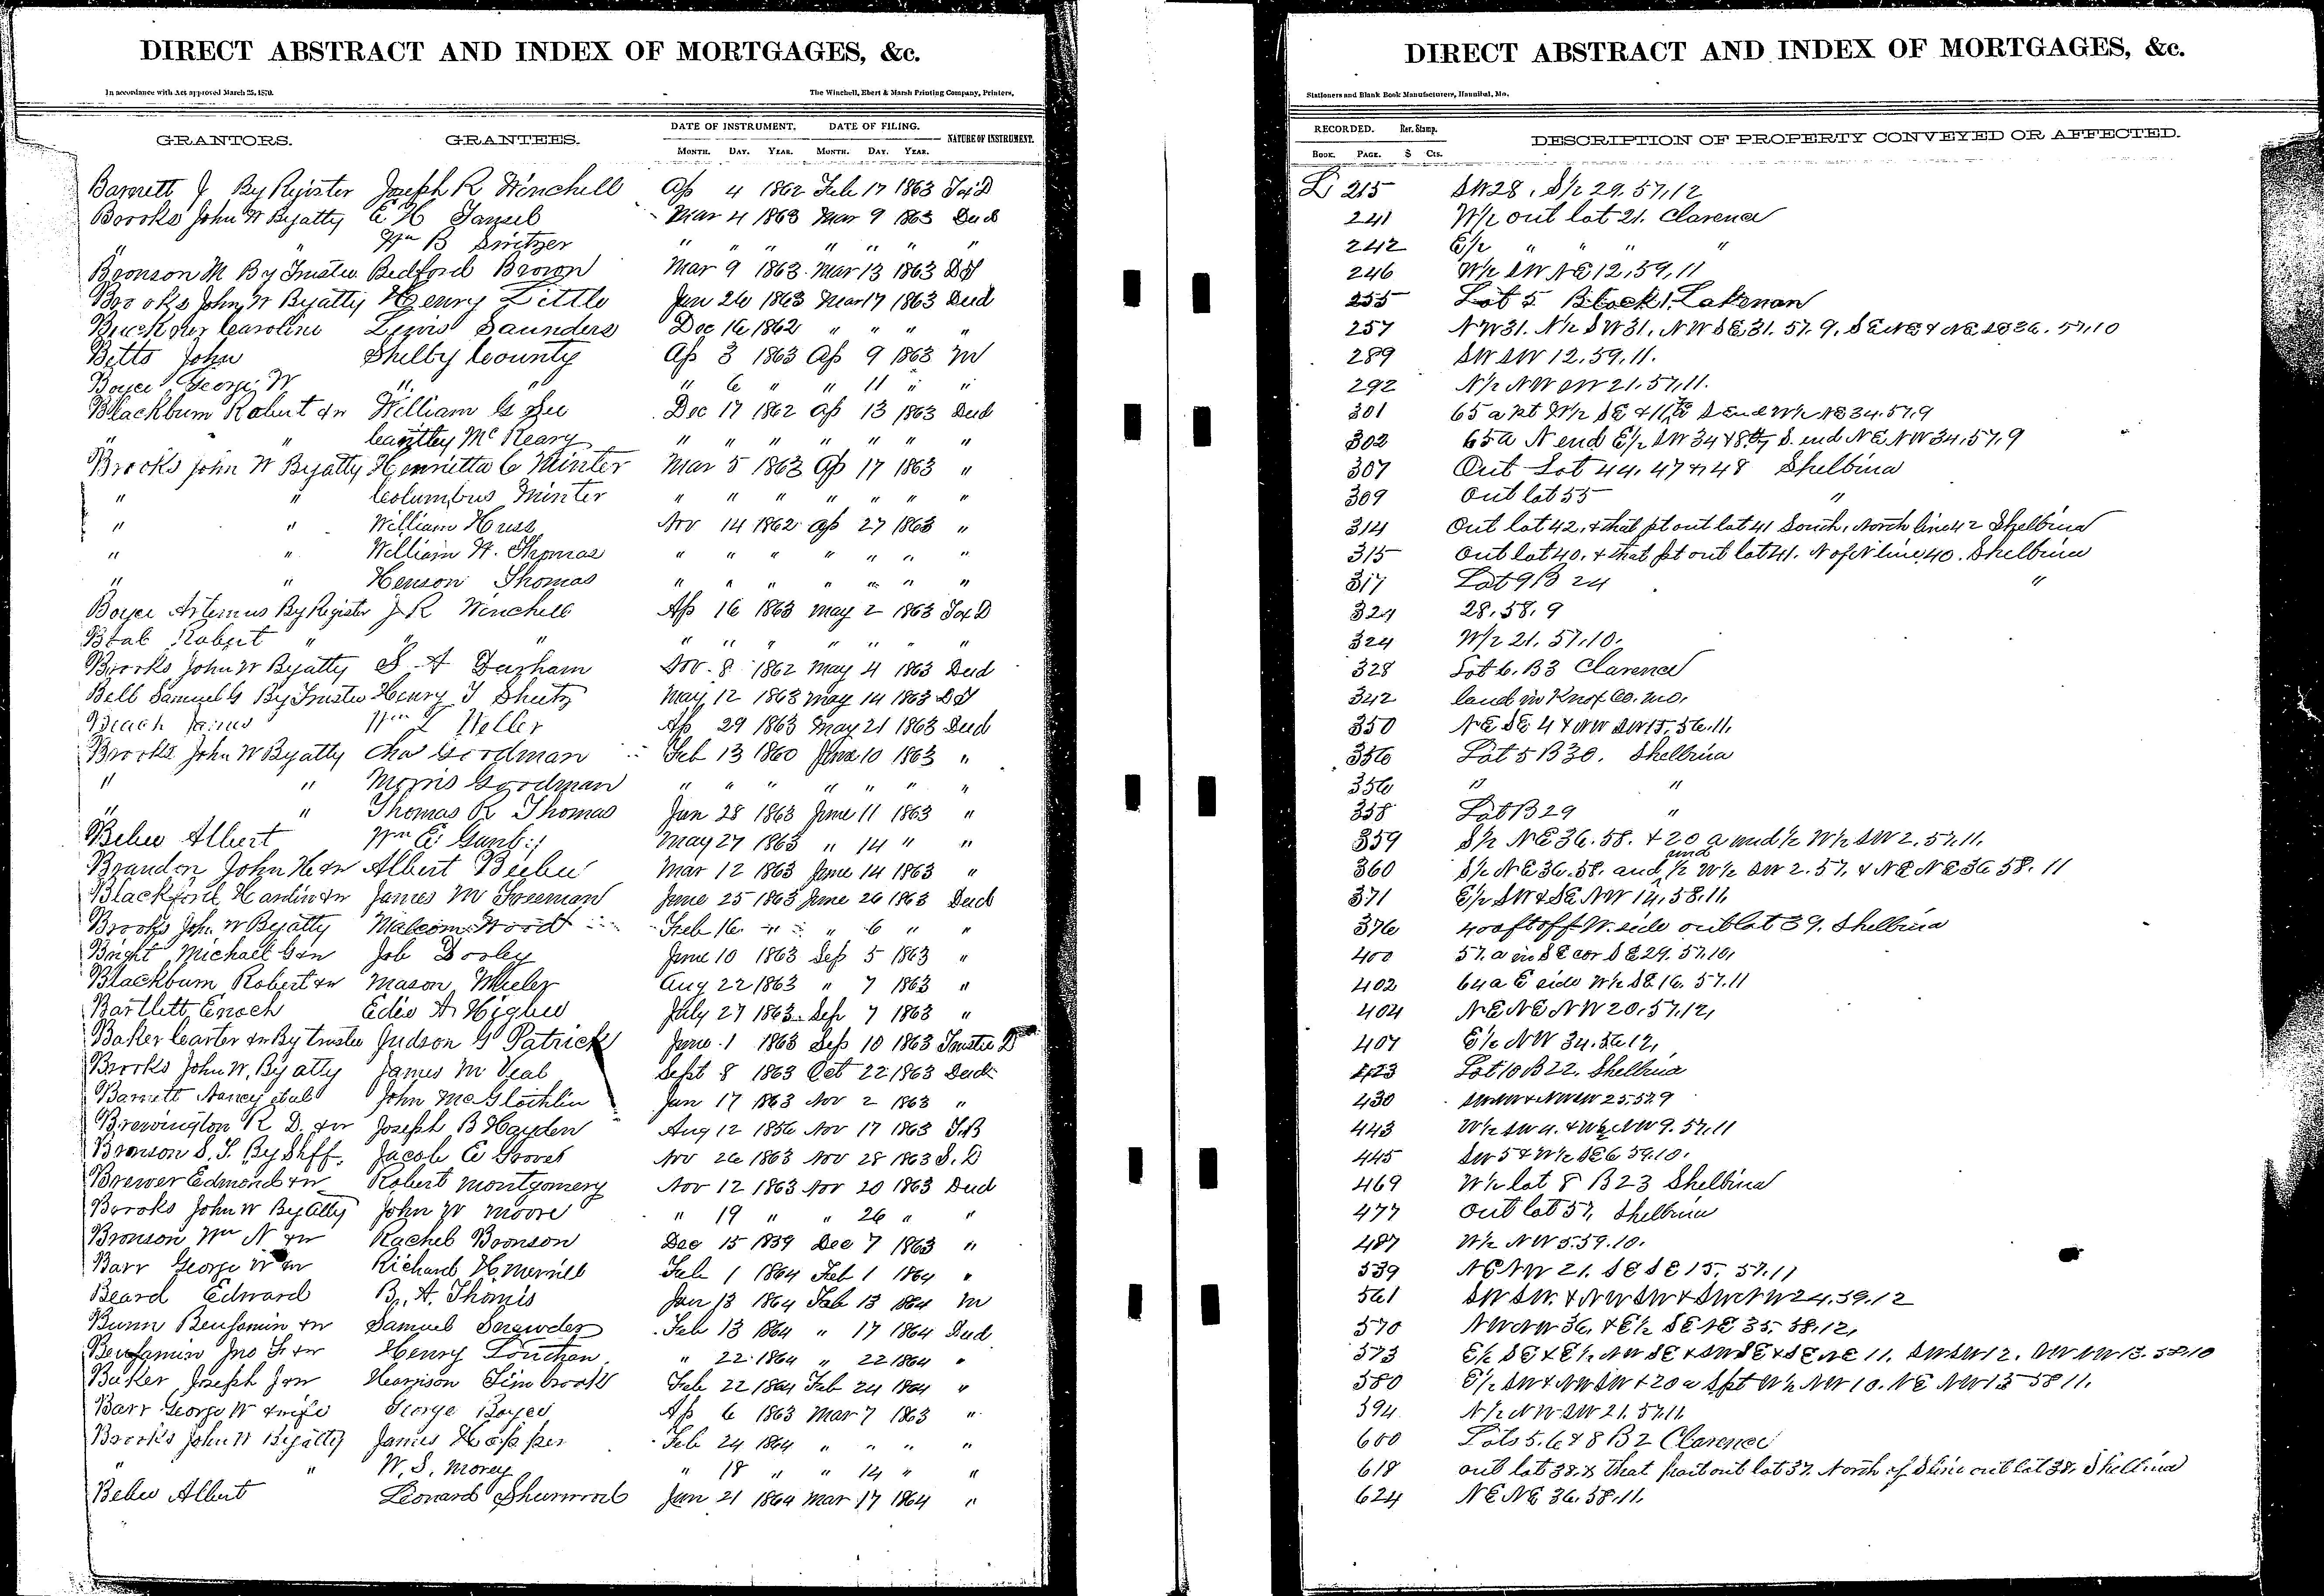 DIRECT ABSTRACT AND INDEX OF MORTGAGES, &c.
In accordance with Act approved March 25, 1870. The Winchell, Ebert & Marsh Printing Company, Printers,
GRANTORS. GRANTEES. DATE OF INSTRUMENT. DATE OF FILING. NATURE OF INSTRUMENT.
MONTH. DAY. YEAR. MONTH. DAY. YEAR.
Barrett J By Register Joseph R Winchell Ap 4 1862 Feb 17 1863 Tax D
Brooks John W By atty E H Tansil Mar 4 1863 Mar 9 1863 Deed
" " Wm B Switzer " " " " " " "
Bronson M By Trustee Bedford Brown Mar 9 1863 Mar 13 1863 D T
Brooks John W By atty Henry Little Jan 26 1863 Mar 17 1863 Deed
Caroline Lewis Saunders Dec 16 1862 " " " "
Betts John Shelby County Ap 3 1863 Ap 9 1863 M
Boyce George W " " " 6 " " 11 " "
Blackburn Robert & w William G Dec 17 1862 Ap 13 1863 Deed
" " McReary " " " " " " "
Brooks John W By atty Henrietta C Minter Mar 5 1863 Ap 17 1863 "
" " Columbus Minter " " " " " " "
" " William Huss Nov 14 1862 Ap 27 1863 "
" " William W. Thomas " " " " " " "
" " Henson Thomas " " " " " " "
Boyce Artemus By Register J R Winchell Ap 16 1863 May 2 1863 Tax D
Robert " " " " " " " " " "
Brooks John W By atty S A Nov 8 1862 May 4 1863 Deed
Bell Samuel G By Trustee Henry T Sheetz May 12 1863 May 14 1863 D T
Beach James Wm L Weller Ap 29 1863 May 21 1863 Deed
Brooks John W By atty Chas Goodman Feb 13 1860 June 10 1863 "
" " Morris Goodman " " " " " " "
" " Thomas R Thomas Jan 28 1863 June 11 1863 "
Bebee Albert Wm E. May 27 1863 " 14 " "
Brandon John H & w Albert Beebee Mar 12 1863 June 14 1863 "
Blackford Hardin & w James M Freeman June 25 1863 June 26 1863 Deed
Brooks John W By atty Malcom Wood Feb 16 " " 6 " "
Bright Michael G & w Job Dooley June 10 1863 Sep 5 1863 "
Blackburn Robert & w Mason Wheeler Aug 22 1863 " 7 1863 "
Bartlett Enoch Edie A Higbee July 27 1863 Sep 7 1863 "
Baker Carter & w By trustee Judson G Patrick June 1 1863 Sep 10 1863 Trustee D
Brooks John W, By atty James M Veal Sept 8 1863 Oct 22 1863 Deed
Barrett Nancy et al John McGlothlin Jan 17 1863 Nov 2 1863 "
Brewington R D. & w Joseph B Hayden Aug 12 1856 Nov 17 1863
Bronson S. T. By Shff. Jacob E Grover Nov 26 1863 Nov 28 1863 S. D
Brewer Edmond & w Robert Montgomery Nov 12 1863 Nov 20 1863 Deed
Brooks John W By Atty John W Moore " 19 " " 26 " "
Bronson Wm N & w Rachel Bronson Dec 15 1839 Dec 7 1863 "
Barr George W & w Richard H Merrill Feb 1 1864 Feb 1 1864 "
Beard Edward B. A. Thomis Jan 13 1864 Feb 13 1864 M
Bunn Benjamin & w Samuel Snawder Feb 13 1864 " 17 1864 Deed
Benjamin Jno & w Henry Louthan " 22 1864 " 22 1864 "
Baker Joseph J & w Harrison Timbrook Feb 22 1864 Feb 24 1864 "
Barr George W & wife George Boyer Ap 6 1863 Mar 7 1863 "
Brooks John W By atty James Hopper Feb 24 1864 " " " "
" " W. S. Morey " 18 " " 14 " "
Bebee Albert Leonard Jan 21 1864 Mar 17 1864 "
DIRECT ABSTRACT AND INDEX OF MORTGAGES, &c.
Stationers and Blank Book Manufacturers, Hannibal, Mo.
RECORDED. Rev. Stamp. DESCRIPTION OF PROPERTY CONVEYED OR AFFECTED.
BOOK. PAGE. $ Cts.
L 215 SW 28. S½ 29. 57, 12
241 W½ out lot 21. Clarence
242 E½ " " " "
246 W½ SW NE 12, 59, 11
255 Lot 5 Block 1. Lakenan
257 NW 31. N½ SW 31, NW SE 31. 57. 9. SE NE & NE SE 36. 57, 10
289 SW SW 12. 59. 11.
292 N½ NW SW 21. 57, 11.
301 65 a pt W½ SE & S end W½ NE 34. 57. 9
302 65 a N end E½ SW 34 & S. end NE NW 34. 57, 9
307 Out Lot 44, 47 & 48 Shelbina
309 Out lot 55 "
314 Out lot 42, & that pt out lot 41 South, North line 42 Shelbina
315 Out lot 40. & that pt out lot 41. N of N line 40. Shelbina
317 Lot 9 B 24 "
324 28. 58. 9
324 W½ 21. 57, 10.
328 Lot 6. B 3 Clarence
342 land in Knox Co. Mo.
350 NE SE 4 & NW SW 15, 56. 11.
356 Lot 5 B 30. Shelbina
356 " "
358 Lot B 29 "
359 S½ NE 36. 58. & 20 a und ½ W½ SW 2. 57, 11.
360 S½ NE 36. 58. and und ½ W½ SW 2. 57. & NE NE 36 58. 11
371 E½ SW & SE NW 14, 58. 11.
376 40 a ft off W. side outlot 39. Shelbina
400 57. a in SE cor SE 29. 57. 10,
402 64 a E side W½ SE 16. 57. 11
404 NE NE NW 20. 57, 12,
407 E½ NW 34. 56 12,
423 Lot 10 B 22. Shelbina
430 SW NW & NW SW 25. 57. 9
443 W½ SW 4. & W½ NW 9. 57, 11
445 SW 5 & W½ SE 6 59. 10.
469 W½ lot 8 B 23 Shelbina
477 Out lot 57, Shelbina
487 W½ NW 5. 59. 10.
539 NE NW 21. SE SE 15, 57. 11
561 SW SW. & NW SW & SW NW 24. 59. 12
570 NW NW 36, & E½ SE NE 35. 58. 12,
573 E½ SE & E½ NW SE & SW SE & SE NE 11. SW SW 12. NW NW 13. 58. 10
580 E½ SW & NW SW & 20 a Spt W½ NW 10. NE NW 15 58 11.
594 N½ NW SW 21. 57. 11
600 Lots 5. 6 & 8 B 2 Clarence
618 out lot 38. & that part out lot 37. North of S line out lot 38. Shelbina
624 NE NE 36. 58. 11.